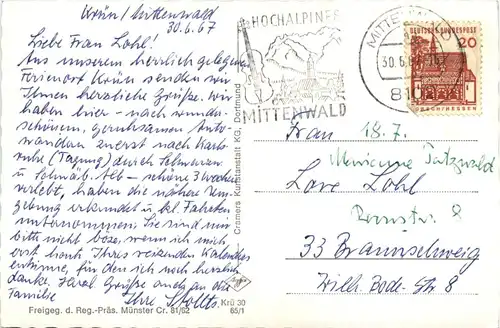 Krün/Mittenwald
30.6.67
Liebe Frau Lohl!
Aus unserem herrlich gelegenen
Ferienort Krün senden wir
Ihnen herzliche Grüße. Wir
haben hier - nach wunder-
schönem, geruhsamen Auto-
wandern zuerst nach Karls-
ruhe (Tagung) durch Schwarzw.
u Schwäb. Alb - schöne 3 Wochen
verlebt, haben die nähere Um-
gebung erkundet u. kl. Fahrten
unternommen. Sie sind uns
bitte nicht böse, wenn ich mich
erst heute Ihres reizenden Kalenders
entsinne, für den ich noch herzlich
danke. Herzl. Grüße auch an die
Familie Ihre
Krü 30
65/1
Freigeg. d. Reg.-Präs. Münster Cr. 81/62
Cramers Kunstanstalt KG, Dortmund
HOCHALPINER
MITTENWALD
MITTENWALD
30.6.67
DEUTSCHE BUNDESPOST
20
LORSCH/HESSEN
Frau 18.7.
Lore Lohl
33 Braunschweig
Wilh. Bode-Str. 8